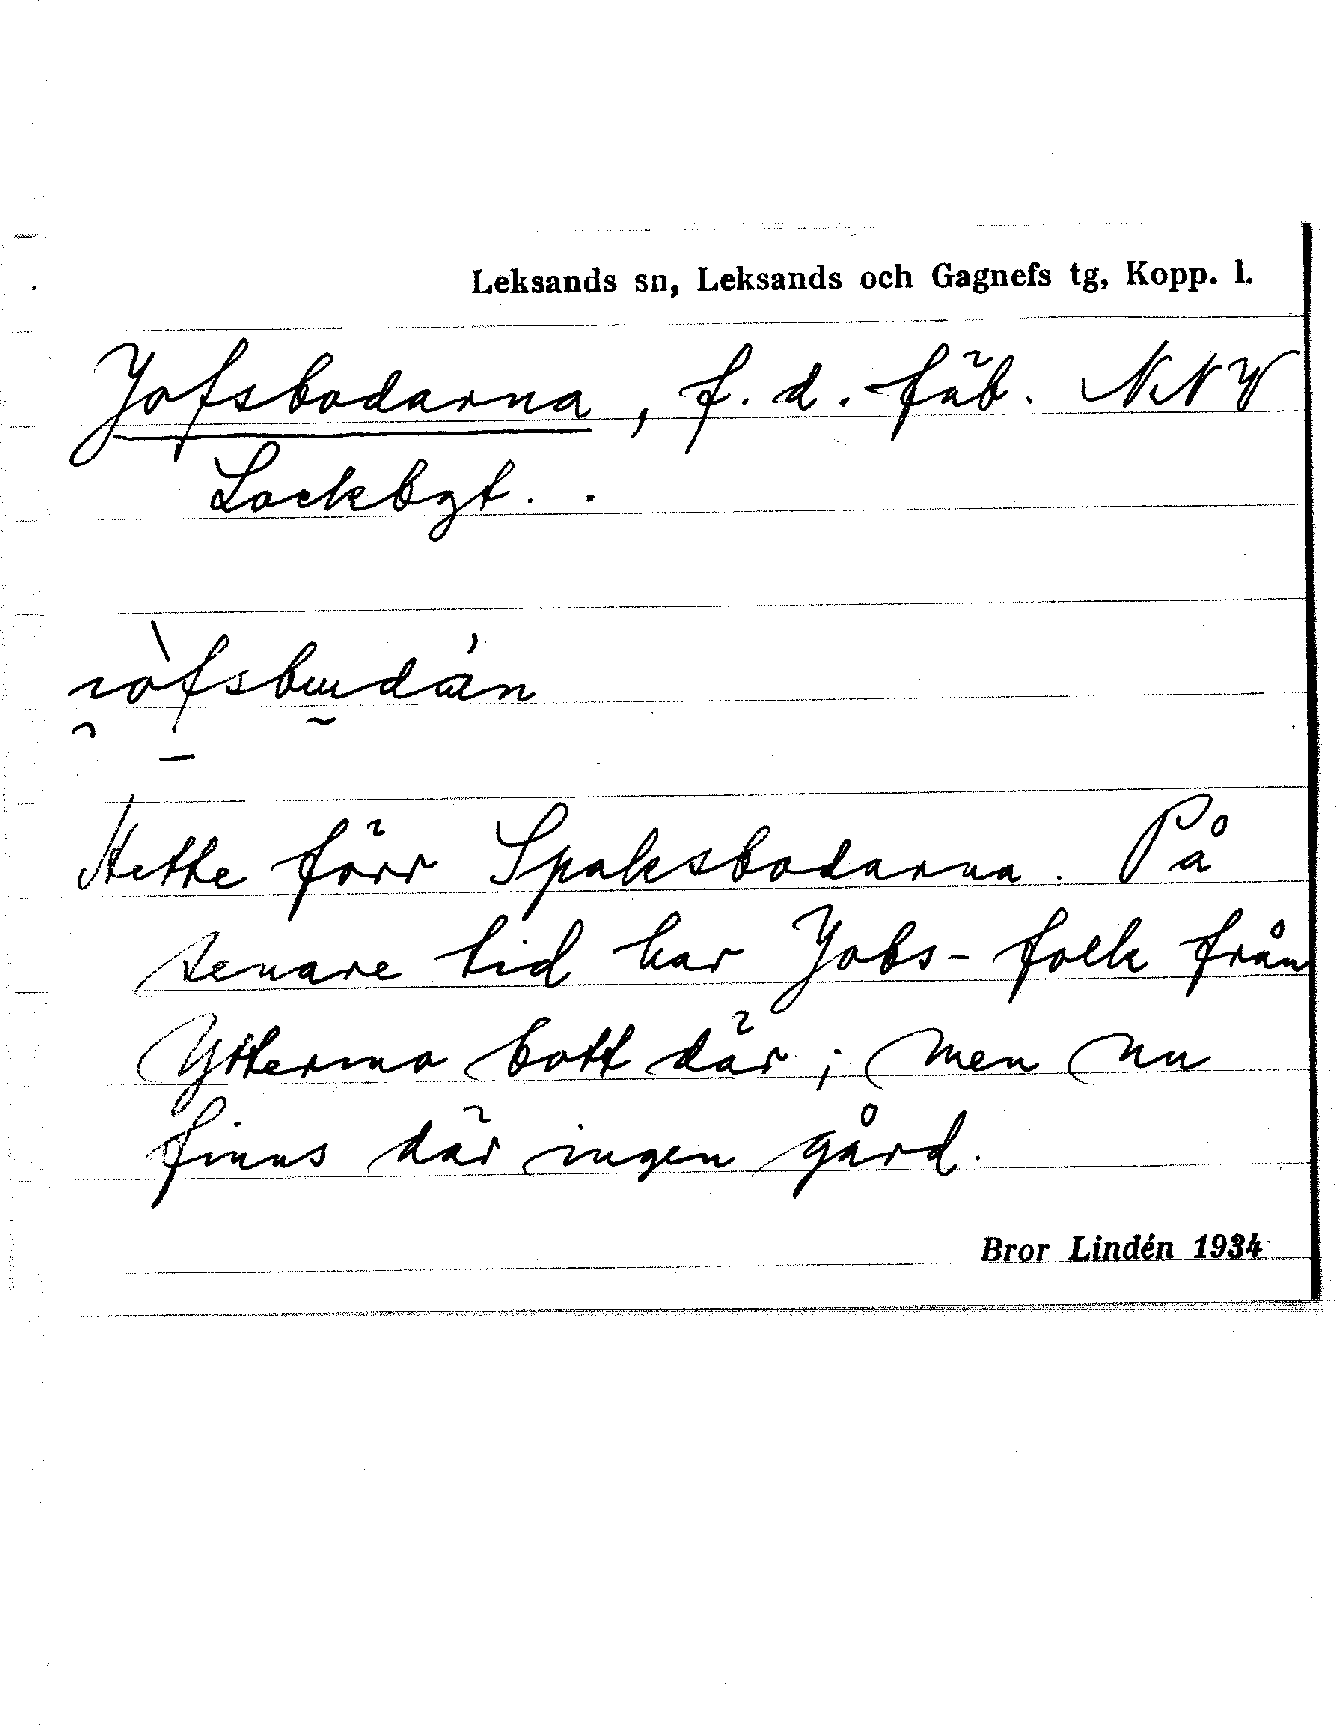 Leksands sn, Leksands och Gagnefs tg, Kopp. l.
Jofsbodarna, f. d. fäb. NNV
Lockbgt.
Hette förr Spaksbodarna. På
senare tid har Jobs-folk från
Yttermo bott där; men nu
finns där ingen gård.
Bror Lindén 1934